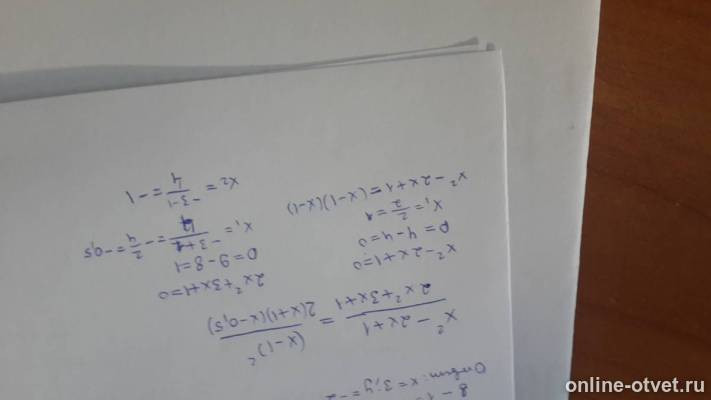 8 - 1
Ответ: x = 3; y = -2
(x² - 2x + 1)/(2x² + 3x + 1) = (x-1)²/(2(x+1)(x-0,5))
x² - 2x + 1 = 0
D = 4 - 4 = 0
x₁ = 2/2 = 1
x² - 2x + 1 = (x-1)(x-1)
2x² + 3x + 1 = 0
D = 9 - 8 = 1
x₁ = (-3+1)/4 = -2/4 = -0,5
x₂ = (-3-1)/4 = -1
online-otvet.ru